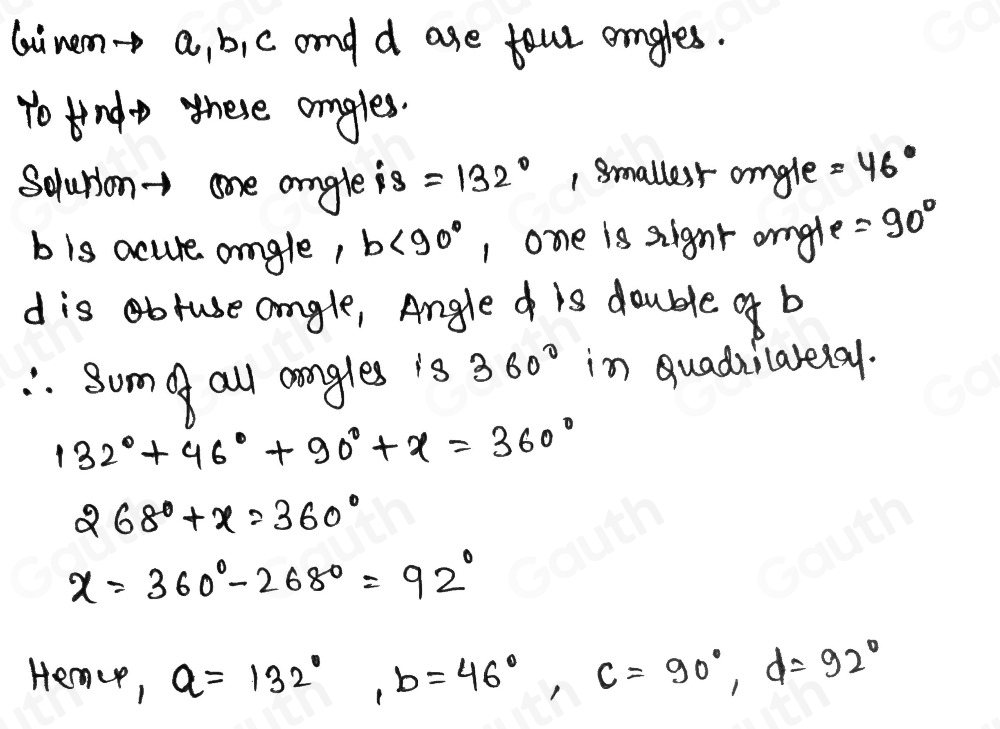 Given → a, b, c and d are four angles.
To find → these angles.
Solution → one angle is = 132° , smallest angle = 46°
b is acute angle , b < 90° , one is right angle = 90°
d is obtuse angle, Angle d is double of b
∴ Sum of all angles is 360° in quadrilateral.
132° + 46° + 90° + x = 360°
268° + x = 360°
x = 360° - 268° = 92°
Hence, a = 132° , b = 46° , c = 90° , d = 92°